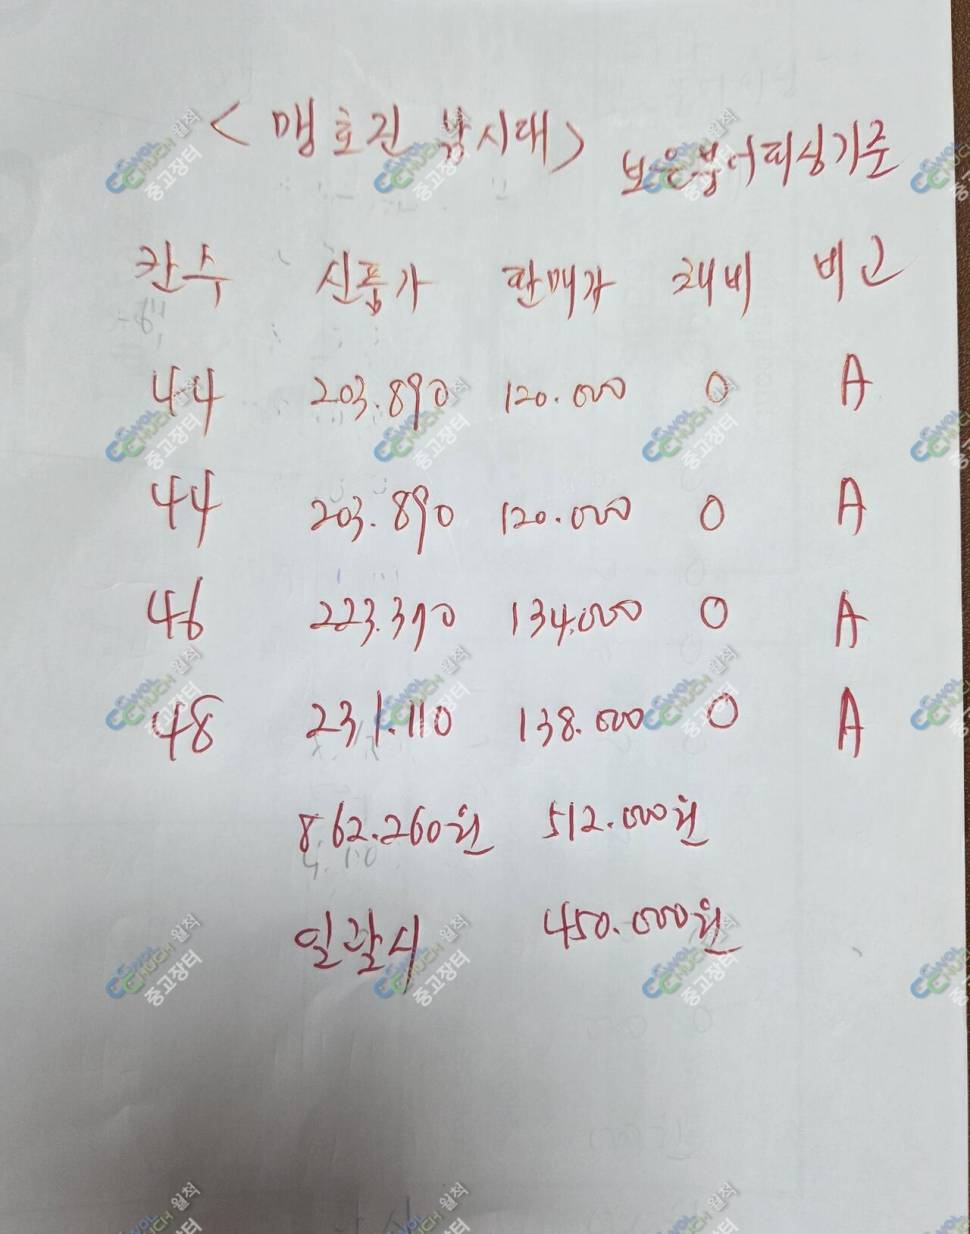 <맹호킹 낚시대> 보은붕어피싱기준
칸수 신품가 판매가 택비 비고
44 203.890 120.000 0 A
44 203.890 120.000 0 A
46 223.370 134.000 0 A
48 231.110 138.000 0 A
862.260원 512.000원
일괄시 450.000원
월척 중고장터